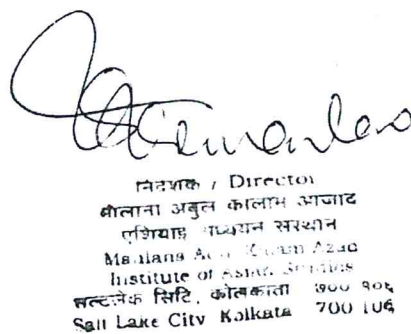 निदेशक / Director
मौलाना अबुल कलाम आजाद
एशियाई अध्ययन संस्थान
Maulana Azad
Institute of Asian Studies
सल्टलेक सिटि, कोलकाता 700 106
Salt Lake City Kolkata 700 106